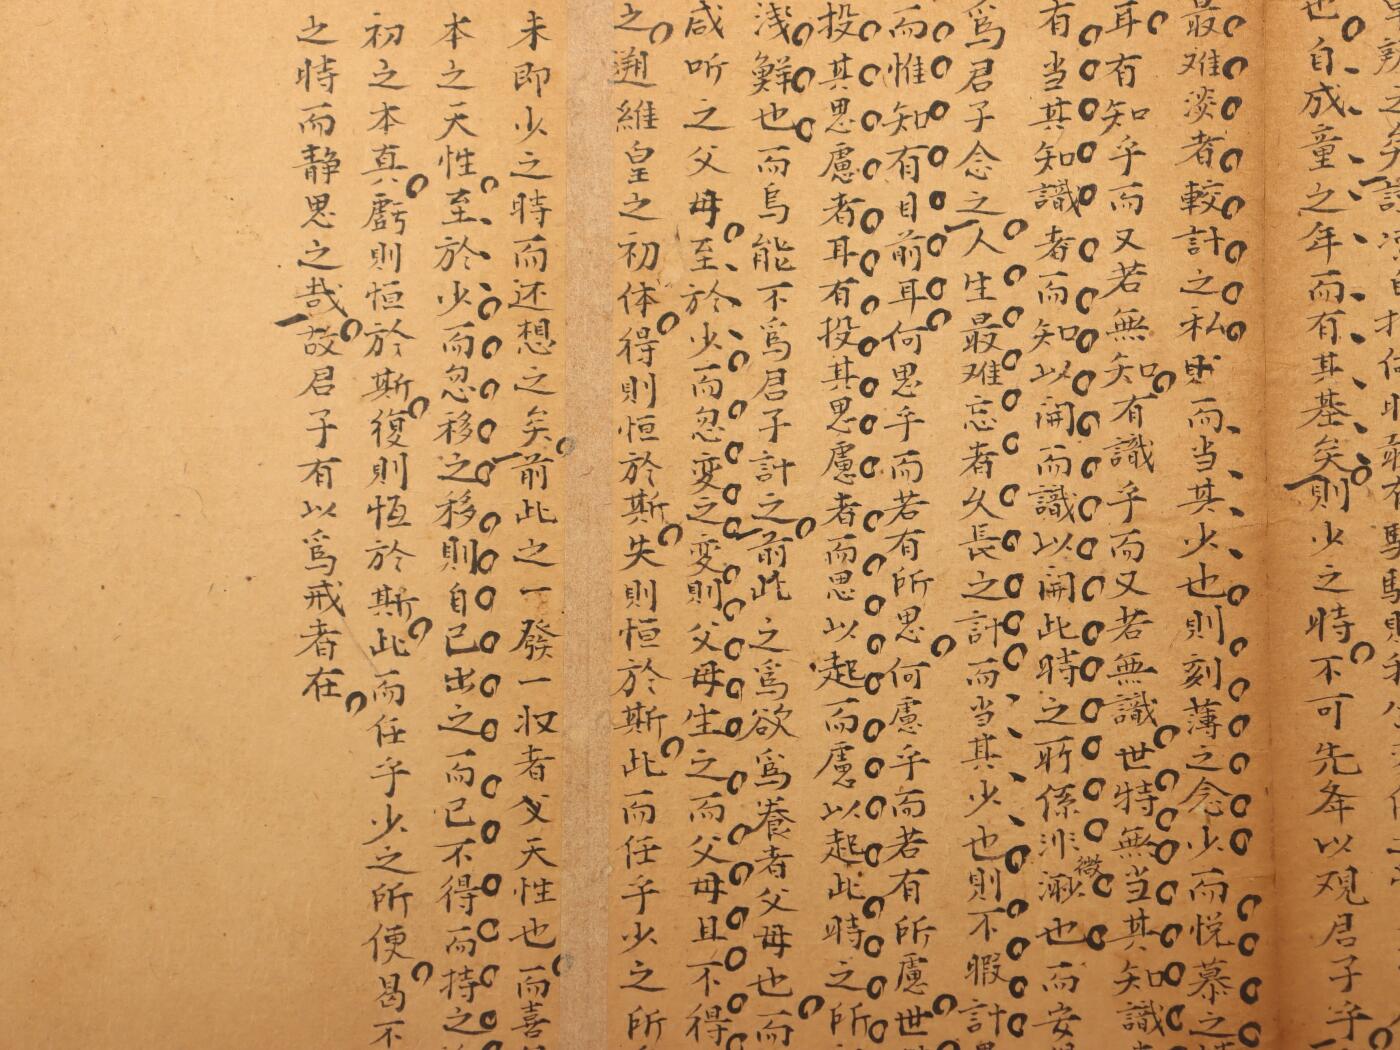 也自成童之年而有其基矣則少之時不可先夅以观君子乎
最难淡者較計之私則而当其少也則刻薄之念少而悦慕之
耳有知乎而又若無知有識乎而又若無識世特無当其知識
有当其知識者而知以開而識以開此時之所係非微也而安
爲君子念之人生最难忘者久長之計而当其少也則不暇計
而惟知有目前耳何思乎而若有所思何慮乎而若有所慮世
投其思慮者耳有投其思慮者而思以起而慮以起此時之所
淺鮮也而烏能不爲君子計之前此之爲欲爲養者父母也而
咸听之父母至於少而忽变之变則父母生之而父母且不得
之遡維皇之初体得則恒於斯失則恒於斯此而任乎少之所
未即少之時而还想之矣前此之一發一收者父天性也而喜
本之天性至於少而忽移之移則自己出之而已不得而持之
初之本真虧則恒於斯復則恆於斯此而任乎少之所便曷不
之時而静思之哉故君子有以爲戒者在